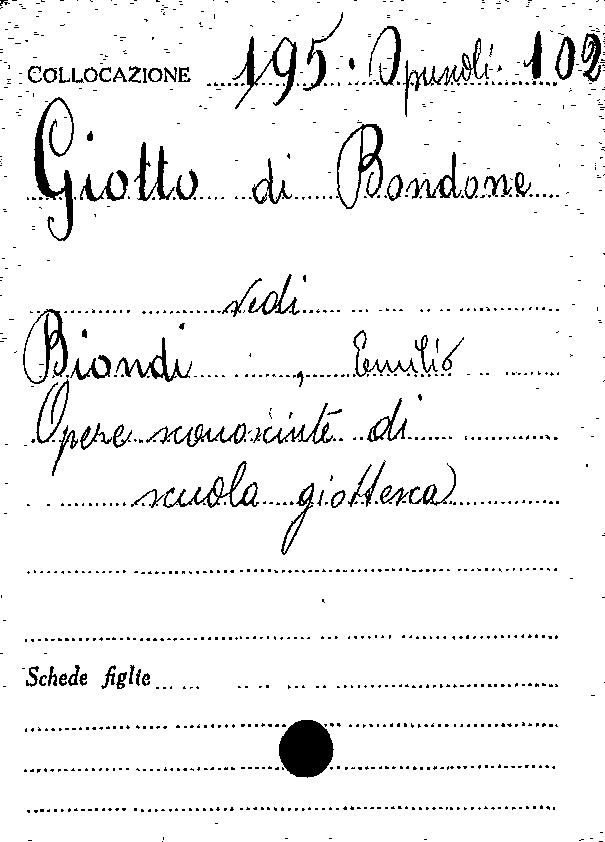 COLLOCAZIONE 195. Opuscoli. 102
Giotto di Bondone
vedi
Biondi, Emilio
Opere sconosciute di
scuola giottesca
Schede figlie